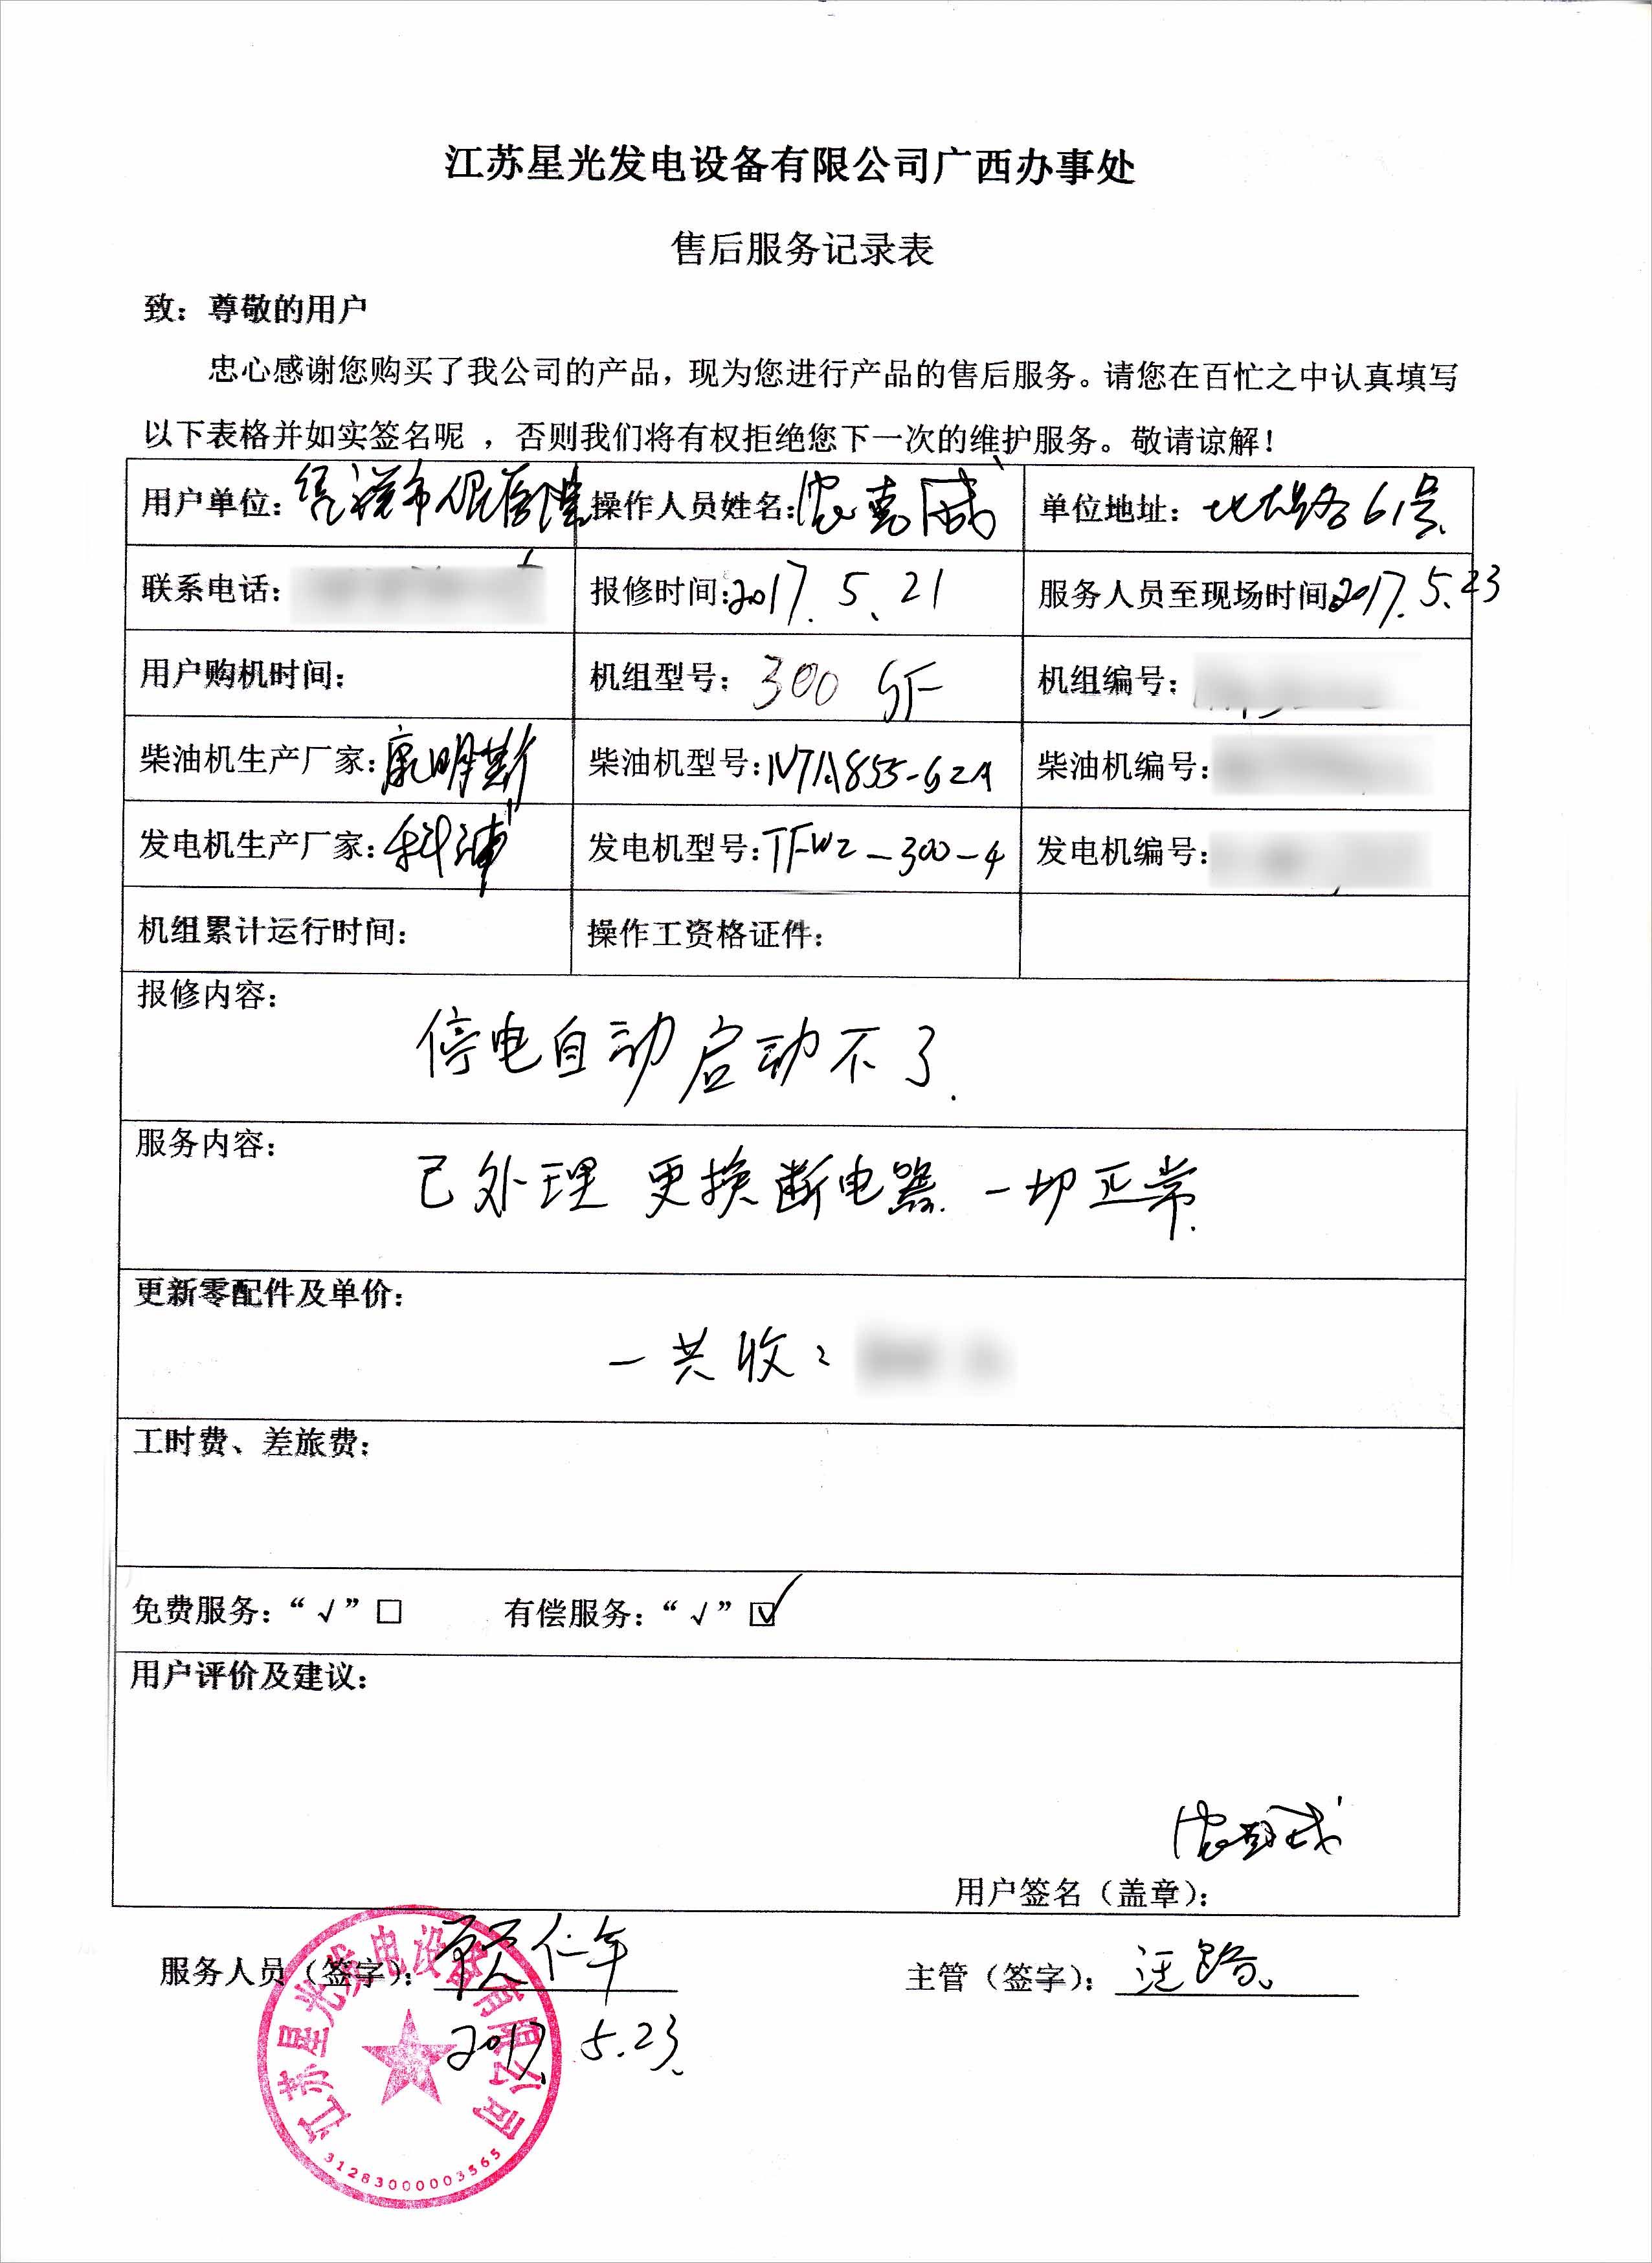 江苏星光发电设备有限公司广西办事处
售后服务记录表
致：尊敬的用户
忠心感谢您购买了我公司的产品，现为您进行产品的售后服务。请您在百忙之中认真填写
以下表格并如实签名呢 ，否则我们将有权拒绝您下一次的维护服务。敬请谅解！
用户单位： 操作人员姓名： 单位地址： 61号
联系电话： 报修时间：2017.5.21 服务人员至现场时间：2017.5.23
用户购机时间： 机组型号：300 GF 机组编号：
柴油机生产厂家：康明斯 柴油机型号：NTA855-G2A 柴油机编号：
发电机生产厂家：科浦 发电机型号：TFW2-300-4 发电机编号：
机组累计运行时间： 操作工资格证件：
报修内容：
停电自动启动不了.
服务内容：
已处理 更换断电器. 一切正常.
更新零配件及单价：
一共收：
工时费、差旅费：
免费服务：“√”□ 有偿服务：“√”☑
用户评价及建议：
用户签名（盖章）：
服务人员（签字）： 主管（签字）：汪路
2017.5.23.
江苏星光发电设备有限公司
31283000003565